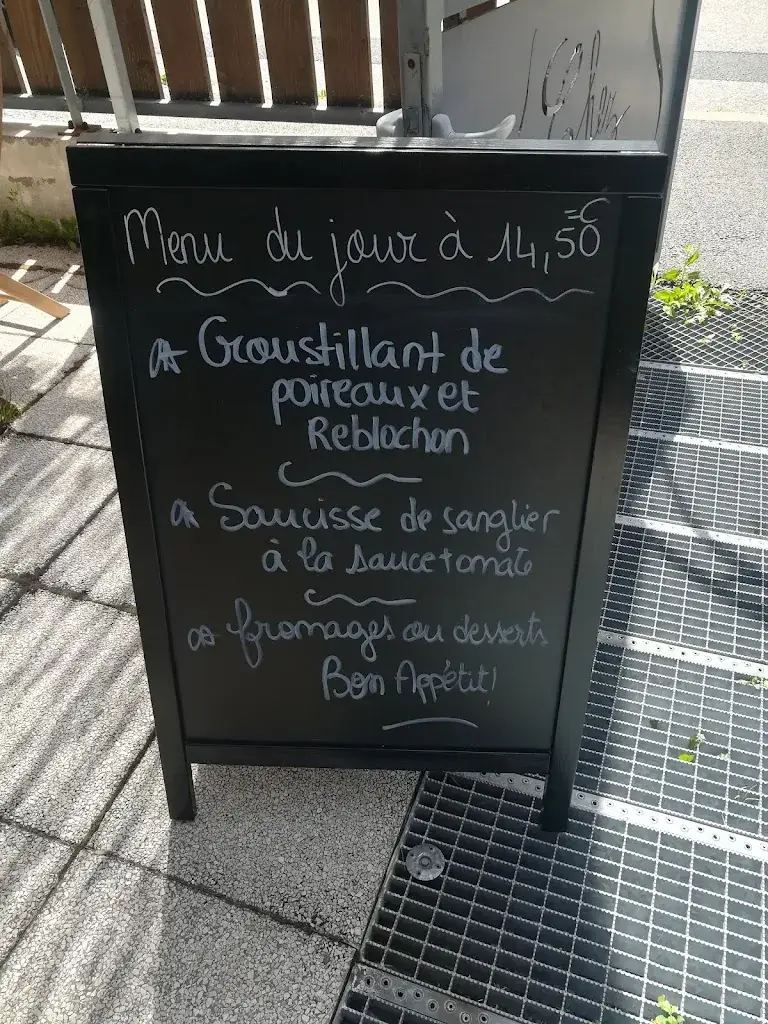 Chez
Menu du jour à 14,50€
Croustillant de
poireaux et
Reblochon
Saucisse de sanglier
à la sauce tomate
fromages ou desserts
Bon Appétit!